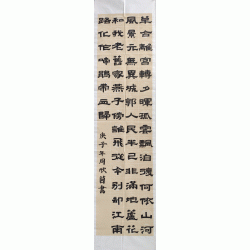 草合離宮轉夕暉孤雲飄泊復何依山河
風景元無異城郭人民半已非滿地蘆花
和我老舊家燕子傍誰飛從今別卻江南
路化作啼鵑帶血歸
庚子年周書